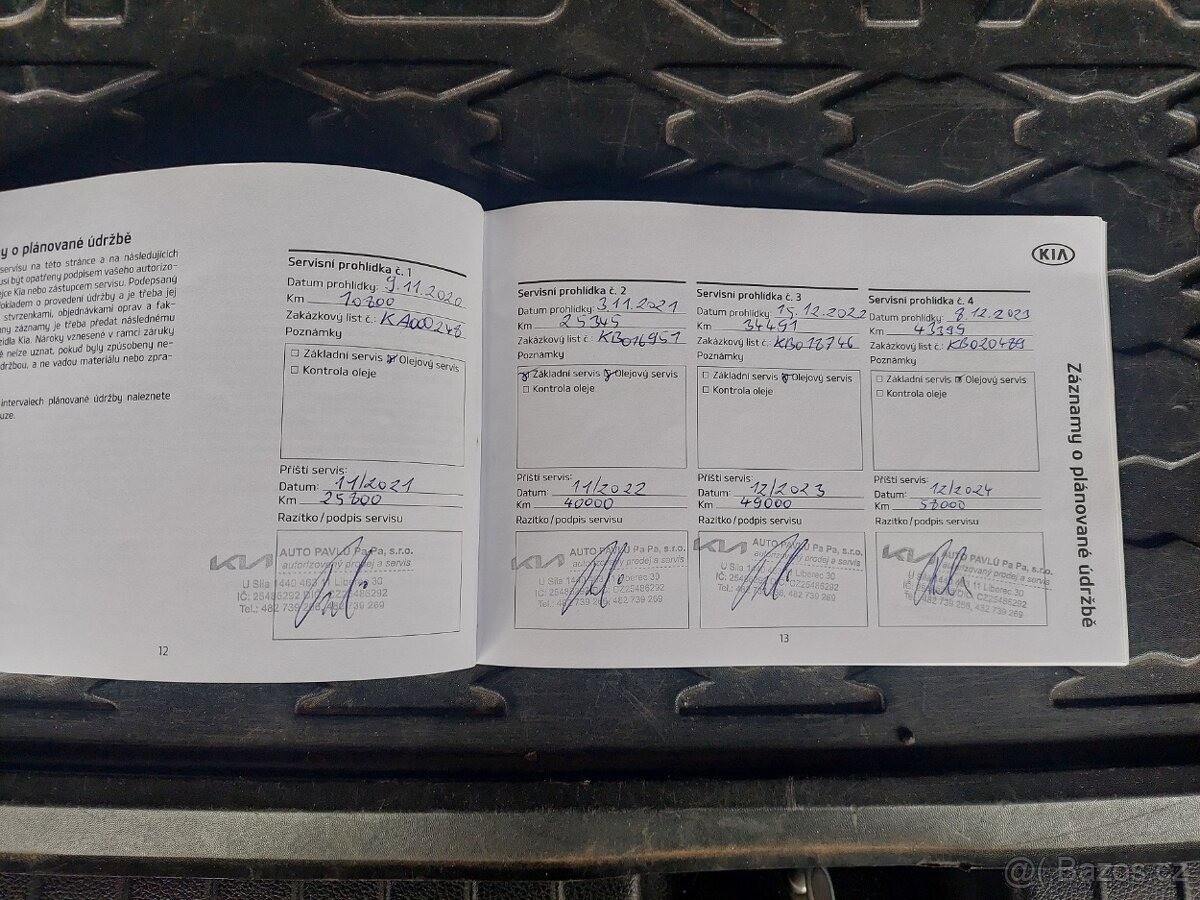 y o plánované údržbě
servisu na této stránce a na následujících
usí být opatřeny podpisem vašeho autorizo-
jce Kia nebo zástupcem servisu. Podepsaný
okladem o provedení údržby a je třeba jej
stvrzenkami, objednávkami oprav a fak-
ny záznamy je třeba předat následnému
zidla Kia. Nároky vznesené v rámci záruky
é nelze uznat, pokud byly způsobeny ne-
držbou, a ne vadou materiálu nebo zpra-
intervalech plánované údržby naleznete
uze.
Servisní prohlídka č. 1
Datum prohlídky: 9.11.2020
Km 10800
Zakázkový list č.: KA000248
Poznámky
Základní servis Olejový servis
Kontrola oleje
Příští servis:
Datum: 11/2021
Km 25800
Razítko/podpis servisu
KIA AUTO PAVLŮ Pa Pa, s.r.o.
autorizovaný prodej a servis
U Sila 1440 463 11 Liberec 30
IČ: 25486292 DIČ: CZ25486292
Tel.: 482 739 268, 482 739 269
12
Servisní prohlídka č. 2
Datum prohlídky: 3.11.2021
Km 25345
Zakázkový list č.: KB016951
Poznámky
Základní servis Olejový servis
Kontrola oleje
Příští servis:
Datum: 11/2022
Km 40000
Razítko/podpis servisu
KIA AUTO PAVLŮ Pa Pa, s.r.o.
autorizovaný prodej a servis
U Sila 1440 463 11 Liberec 30
IČ: 25486292 DIČ: CZ25486292
Tel.: 482 739 268, 482 739 269
Servisní prohlídka č. 3
Datum prohlídky: 15.12.2022
Km 34491
Zakázkový list č.: KB018746
Poznámky
Základní servis Olejový servis
Kontrola oleje
Příští servis:
Datum: 12/2023
Km 49000
Razítko/podpis servisu
KIA AUTO PAVLŮ Pa Pa, s.r.o.
autorizovaný prodej a servis
U Sila 1440 463 11 Liberec 30
IČ: 25486292 DIČ: CZ25486292
Tel.: 482 739 268, 482 739 269
13
KIA
Servisní prohlídka č. 4
Datum prohlídky: 8.12.2023
Km 43395
Zakázkový list č.: KB020489
Poznámky
Základní servis Olejový servis
Kontrola oleje
Příští servis:
Datum: 12/2024
Km 58000
Razítko/podpis servisu
KIA AUTO PAVLŮ Pa Pa, s.r.o.
autorizovaný prodej a servis
U Sila 1440 463 11 Liberec 30
IČ: 25486292 DIČ: CZ25486292
Tel.: 482 739 268, 482 739 269
Záznamy o plánované údržbě
@( Bazos.cz